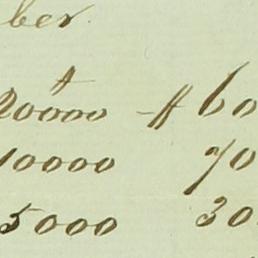 ber.
20000 # 60
10000 70
5000 30